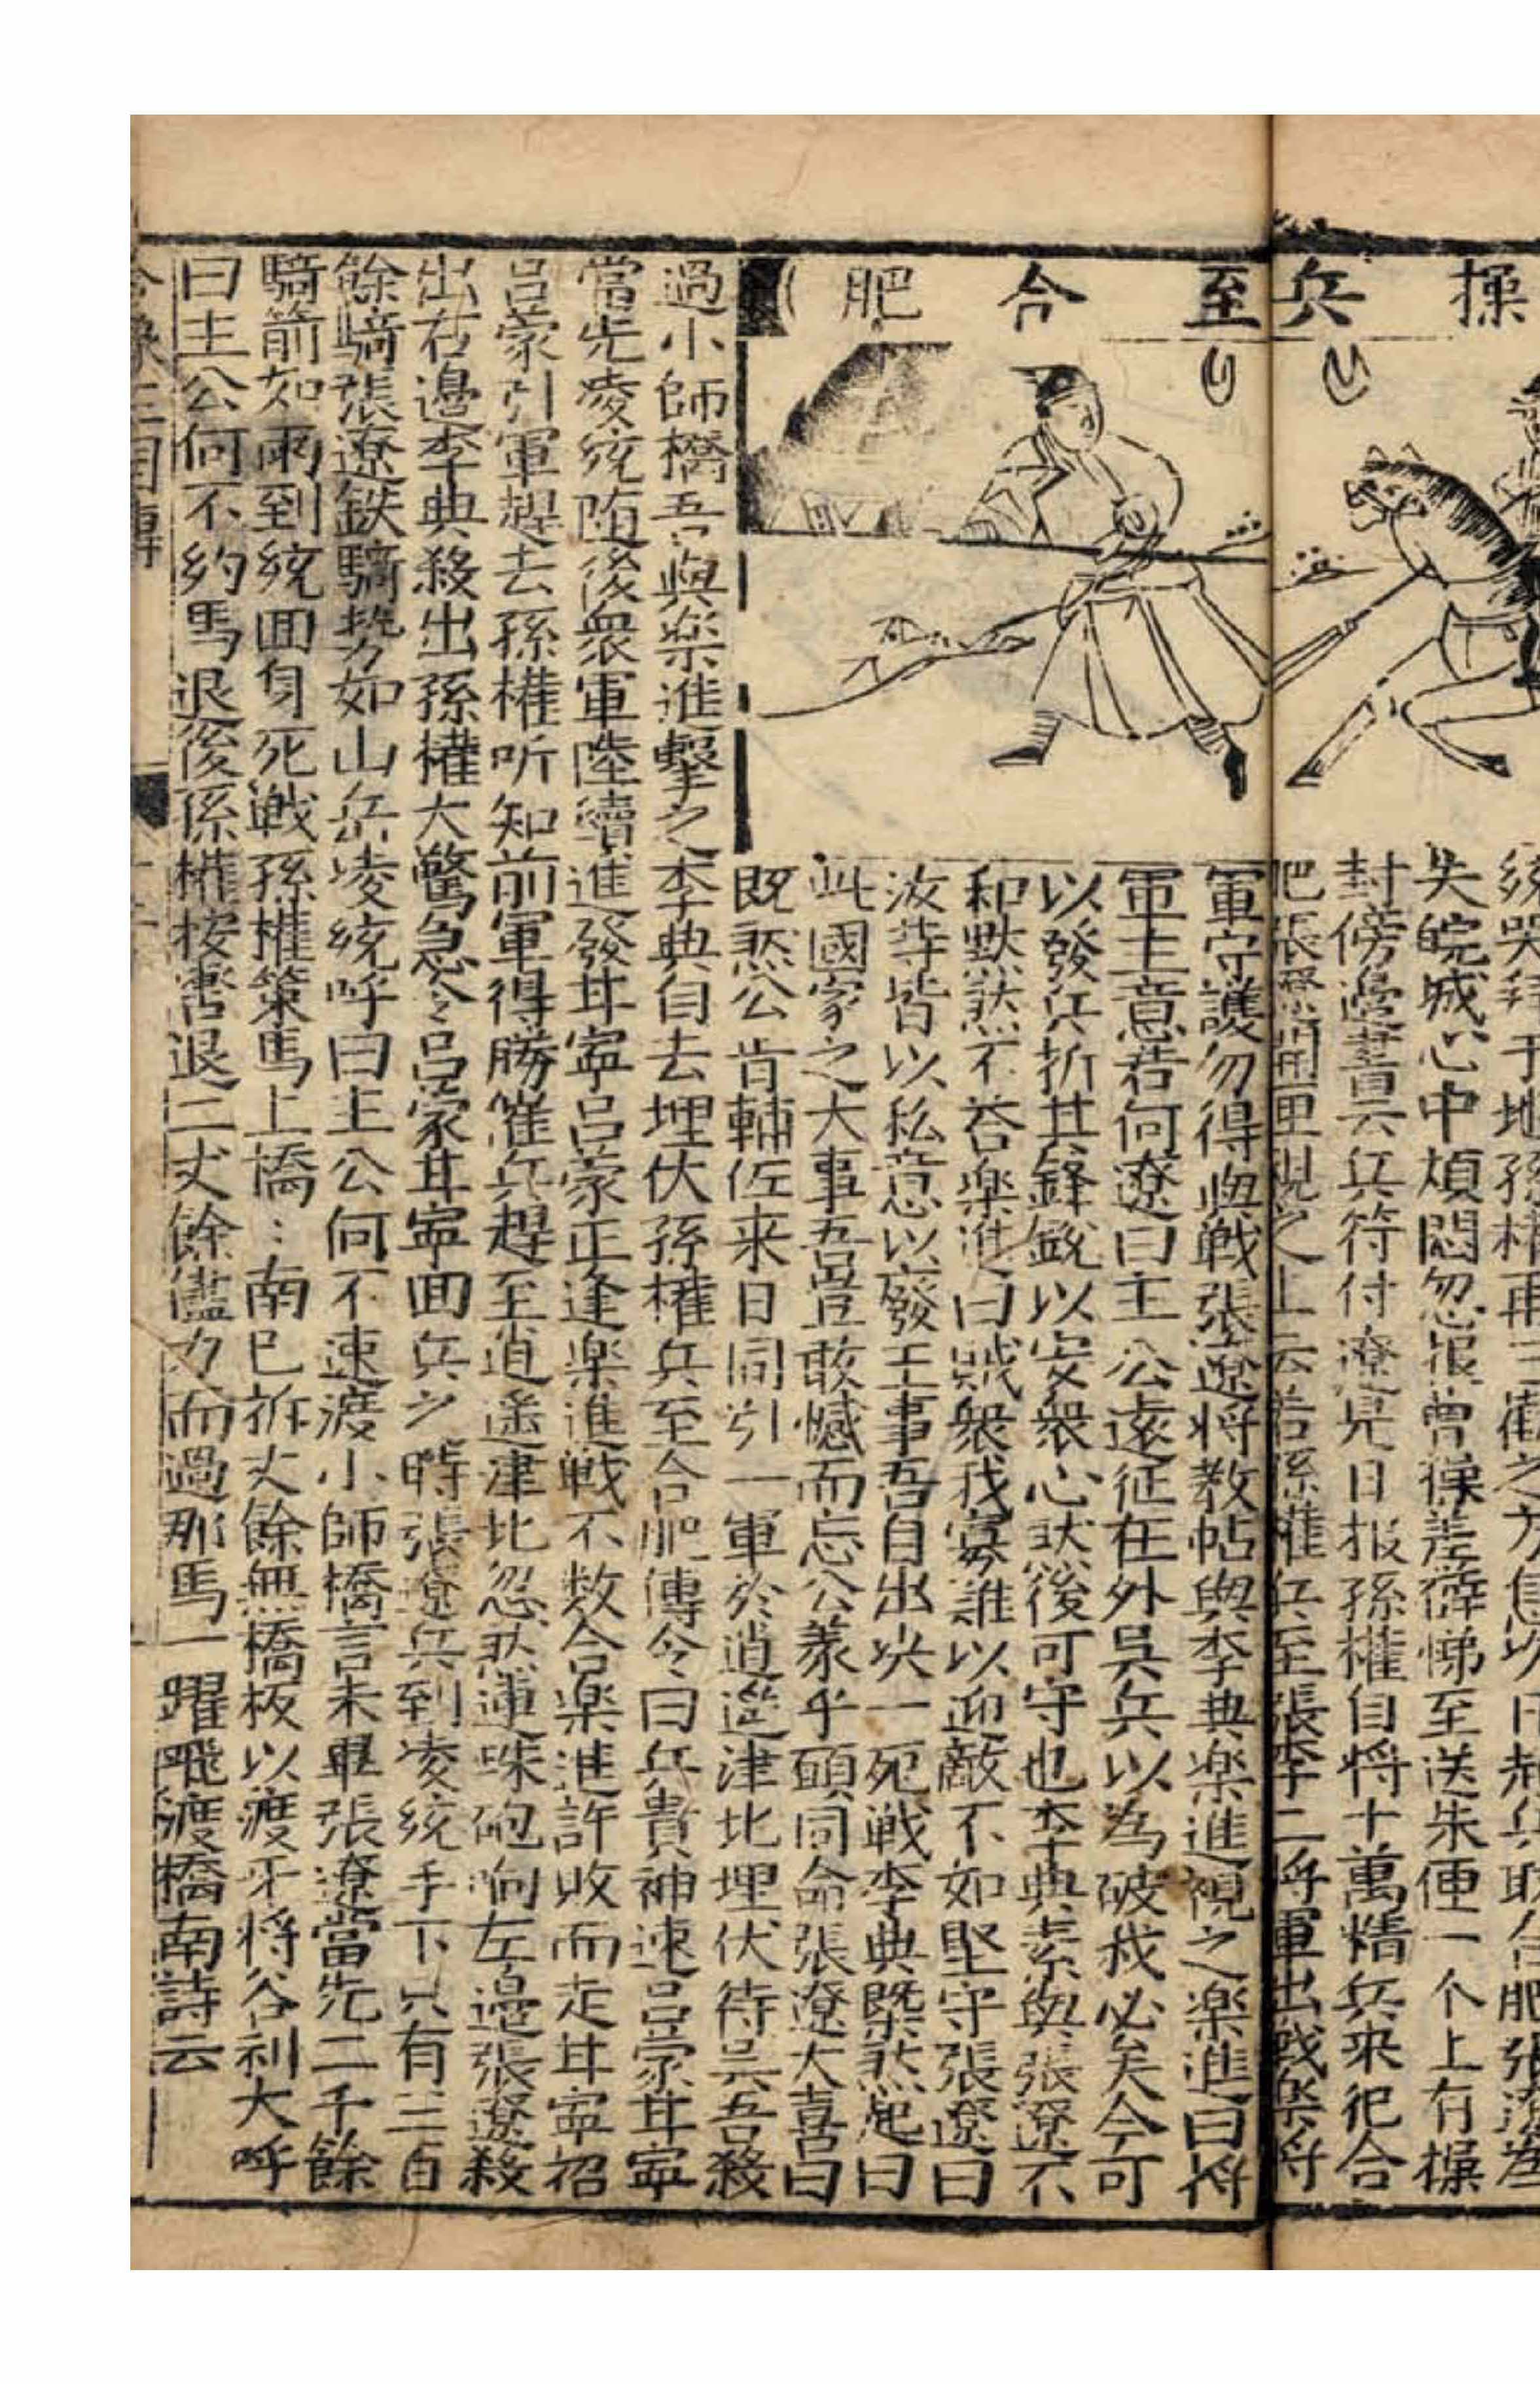 操兵至合肥
于地孫權再三勸之方息次日起兵取合肥張遼
失皖城心中煩悶忽報曹操差薛悌至送朱匣一个上有操
封傍邊書云兵符付遼是日报孫權自将十萬精兵來犯合
肥張遼開匣視之上云若孫權兵至張李二将軍出戰楽将
軍守護勿得與戦張遼将教帖與李典楽進視之楽進曰将
軍主意若何遼曰主公遠征在外吳兵以為破我必矣今可
以發兵折其鋒銳以安衆心然後可守也李典素與張遼不
和默然不荅楽進曰賊衆我寡難以迎敵不如堅守張遼曰
汝等皆以私意以癈王事吾自出决一死戦李典慨然起曰
此國家之大事吾豈敢憾而忘公義乎願同命張遼大喜曰
既然公肯輔佐来日同引一軍於逍遥津北埋伏待吳吾殺
過小師橋吾與楽進擊之李典自去埋伏孫權兵至合肥傳令曰兵貴神速呂蒙甘寧
當先凌統随後衆軍陸續進發甘寧呂蒙正逢楽進戦不数合楽進詐敗而走甘寧招
呂蒙引軍趕去孫權听知前軍得勝催兵趕至逍遥津北忽然連珠砲响左邊張遼殺
出右邊李典殺出孫權大驚急令呂蒙甘寧回兵之時張遼兵到凌統手下只有三百
餘騎張遼鉄騎势如山岳凌統呼曰主公何不速渡小師橋言未畢張遼當先二千餘
騎箭如雨到統回身死戦孫權策馬上橋〻南已拆丈餘無橋板以渡牙将谷利大呼
曰主公何不約馬退後孫權按轡退二丈餘儘力而過那馬一躍飛渡橋南詩云
全像三国傳